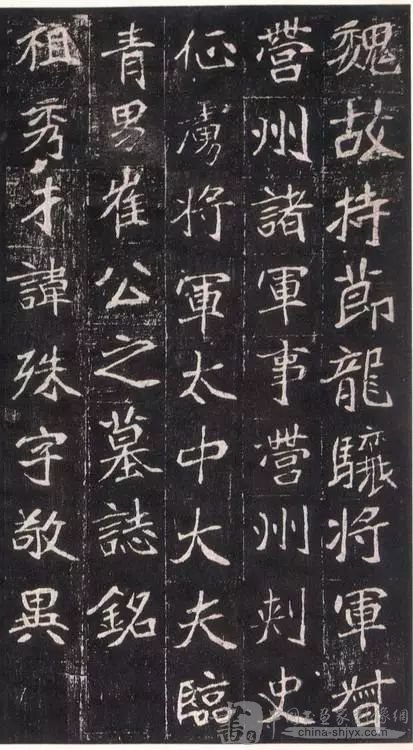 魏故持節龍驤將軍督
營州諸軍事營州刺史
征虜將軍太中大夫臨
青男崔公之墓誌銘
祖秀才諱殊字敬異
china-shjyx.com